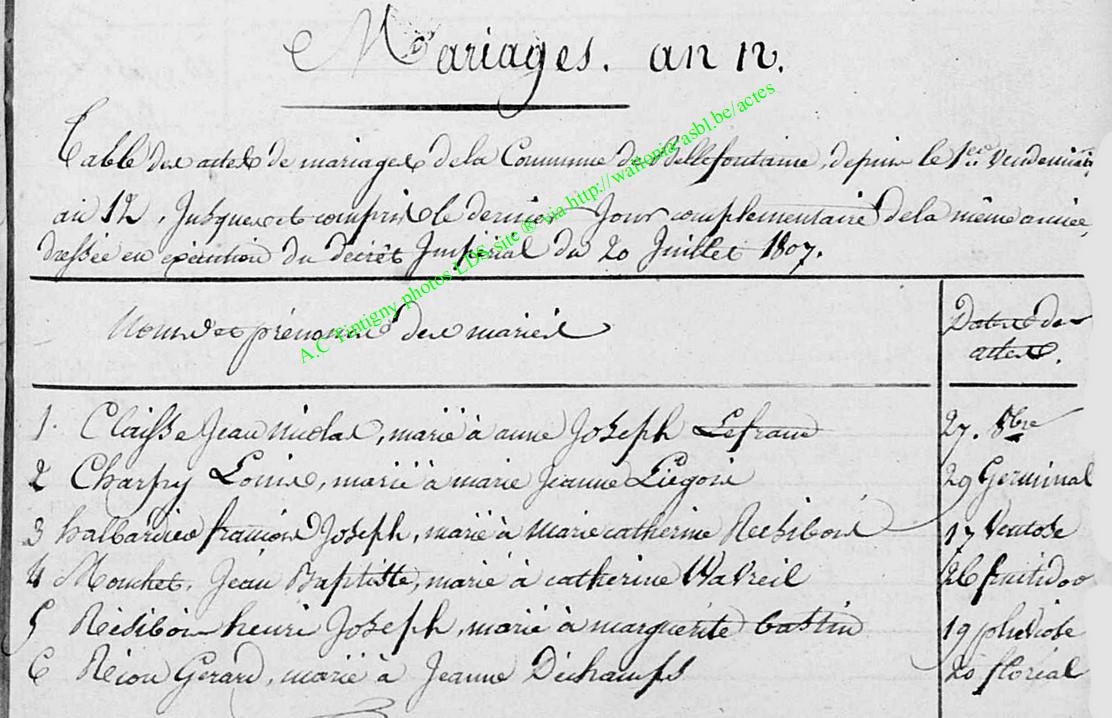 Mariages. an 12.
Table des actes de mariages de la Commune de Bellefontaine, depuis le 1er Vendemiaire
an 12, Jusques et compris le dernier Jour complementaire de la même année,
dressée en exécution du décrêt Impérial du 20 Juillet 1807.
Noms et prénoms des mariés
Dates des
actes.
1. Claisse Jean nicolas, marié à anne Joseph Lefranc 27. 8bre
2 Charpy Louis, marié à marie Jeanne Liégois 29 Germinal
3 halbardier françois Joseph, marié à Marie catherine Résibois 17 Ventose
4 Mouchet, Jean Baptiste, marié à catherine Watreil 26 fruitidor
5 Résibois henri Joseph, marié à marguerite Bastin 19 pluviose
6 Réion Gerard, marié à Jeanne Déchamps 20 floréal
A.C Tintigny photos LDS site ® via http://wallonia-asbl.be/actes